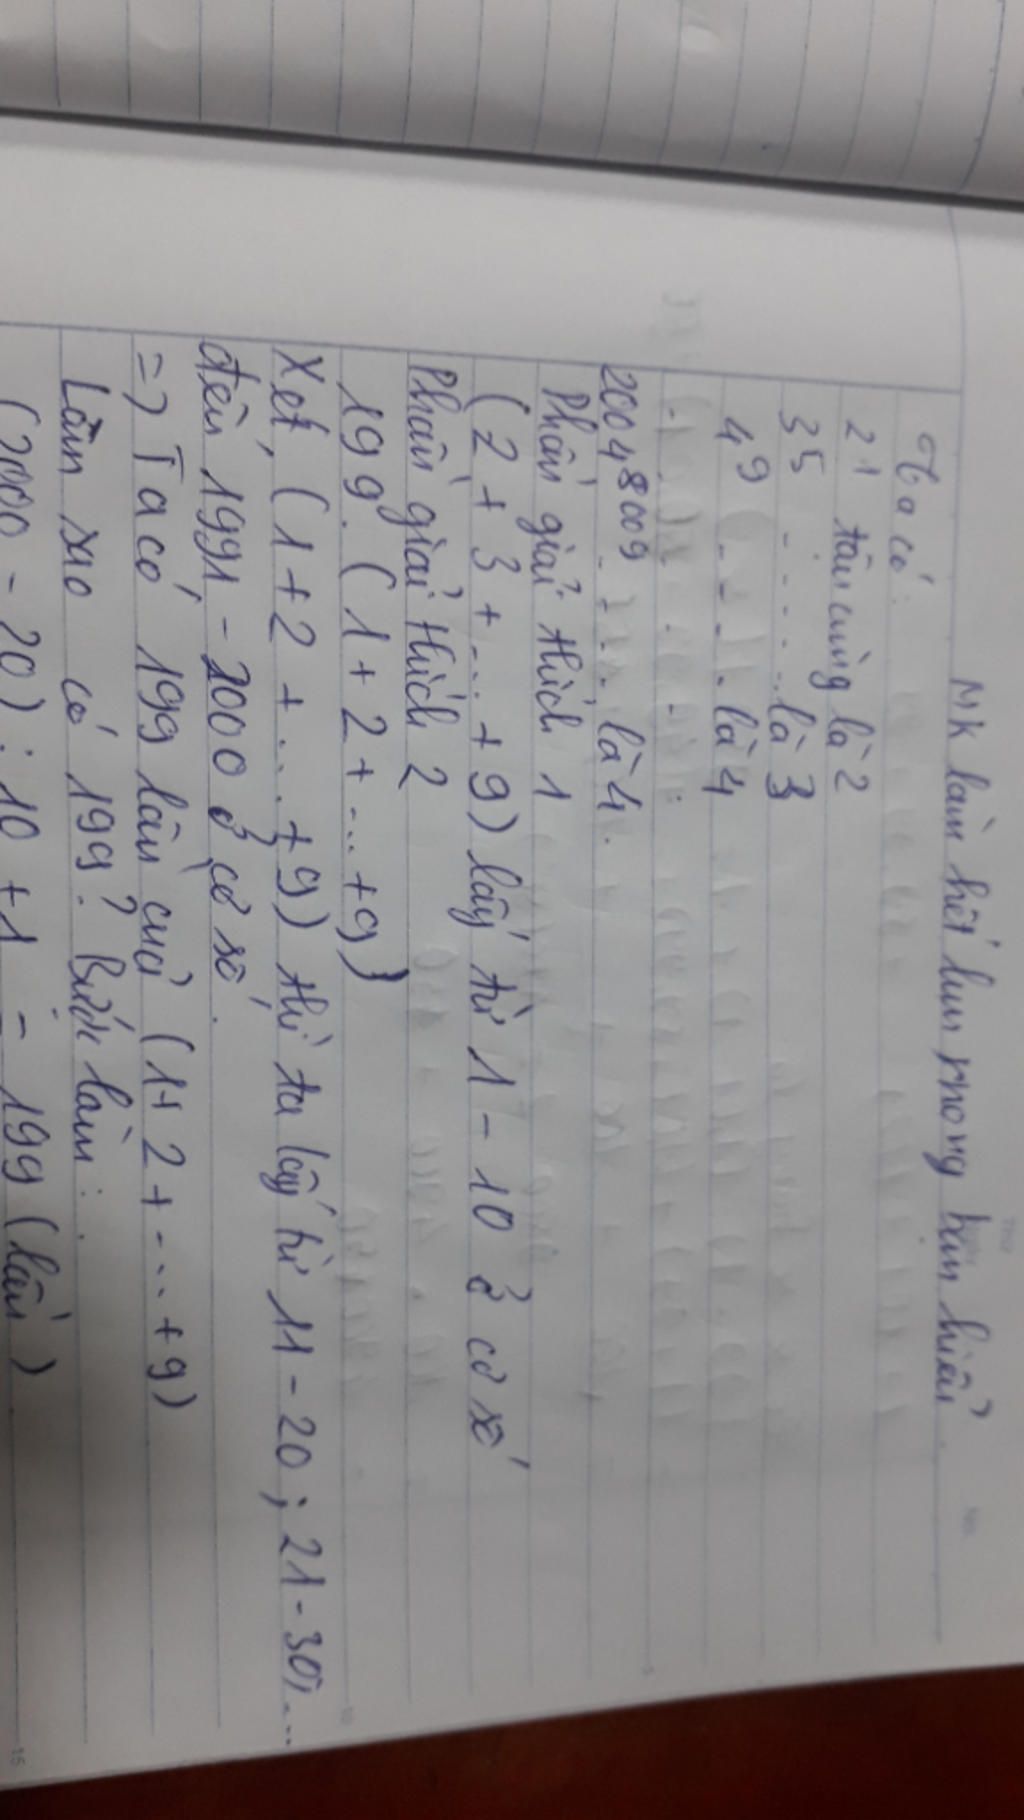 MK làm hết lun mong bạn hiểu
Ta có:
21 tận cùng là 2
35 ..... là 3
49 .... là 4
20048009 .... là 4.
Phần giải thích 1
(2+3+...+9) lấy từ 1-10 ở cơ số
Phần giải thích 2
199.(1+2+...+9)
Xét (1+2+...+9) thì ta lấy từ 11-20; 21-30;...
đến 1991-2000 ở cơ số.
=> Ta có 199 lần của (1+2+...+9)
Làm sao có 199? Bước làm:
(2000-20):10+1=199 (lần)